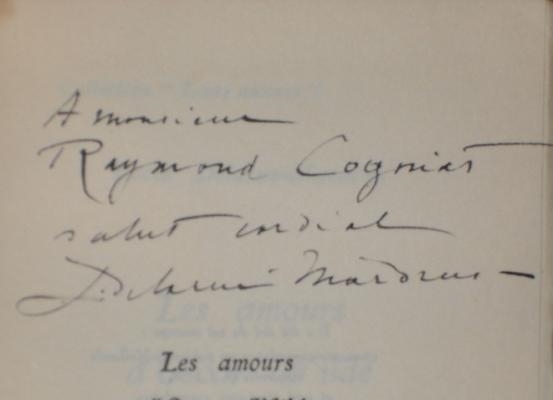 A monsieur
Raymond Cogniat
salut cordial
L. Delarue Mardrus
Les amours